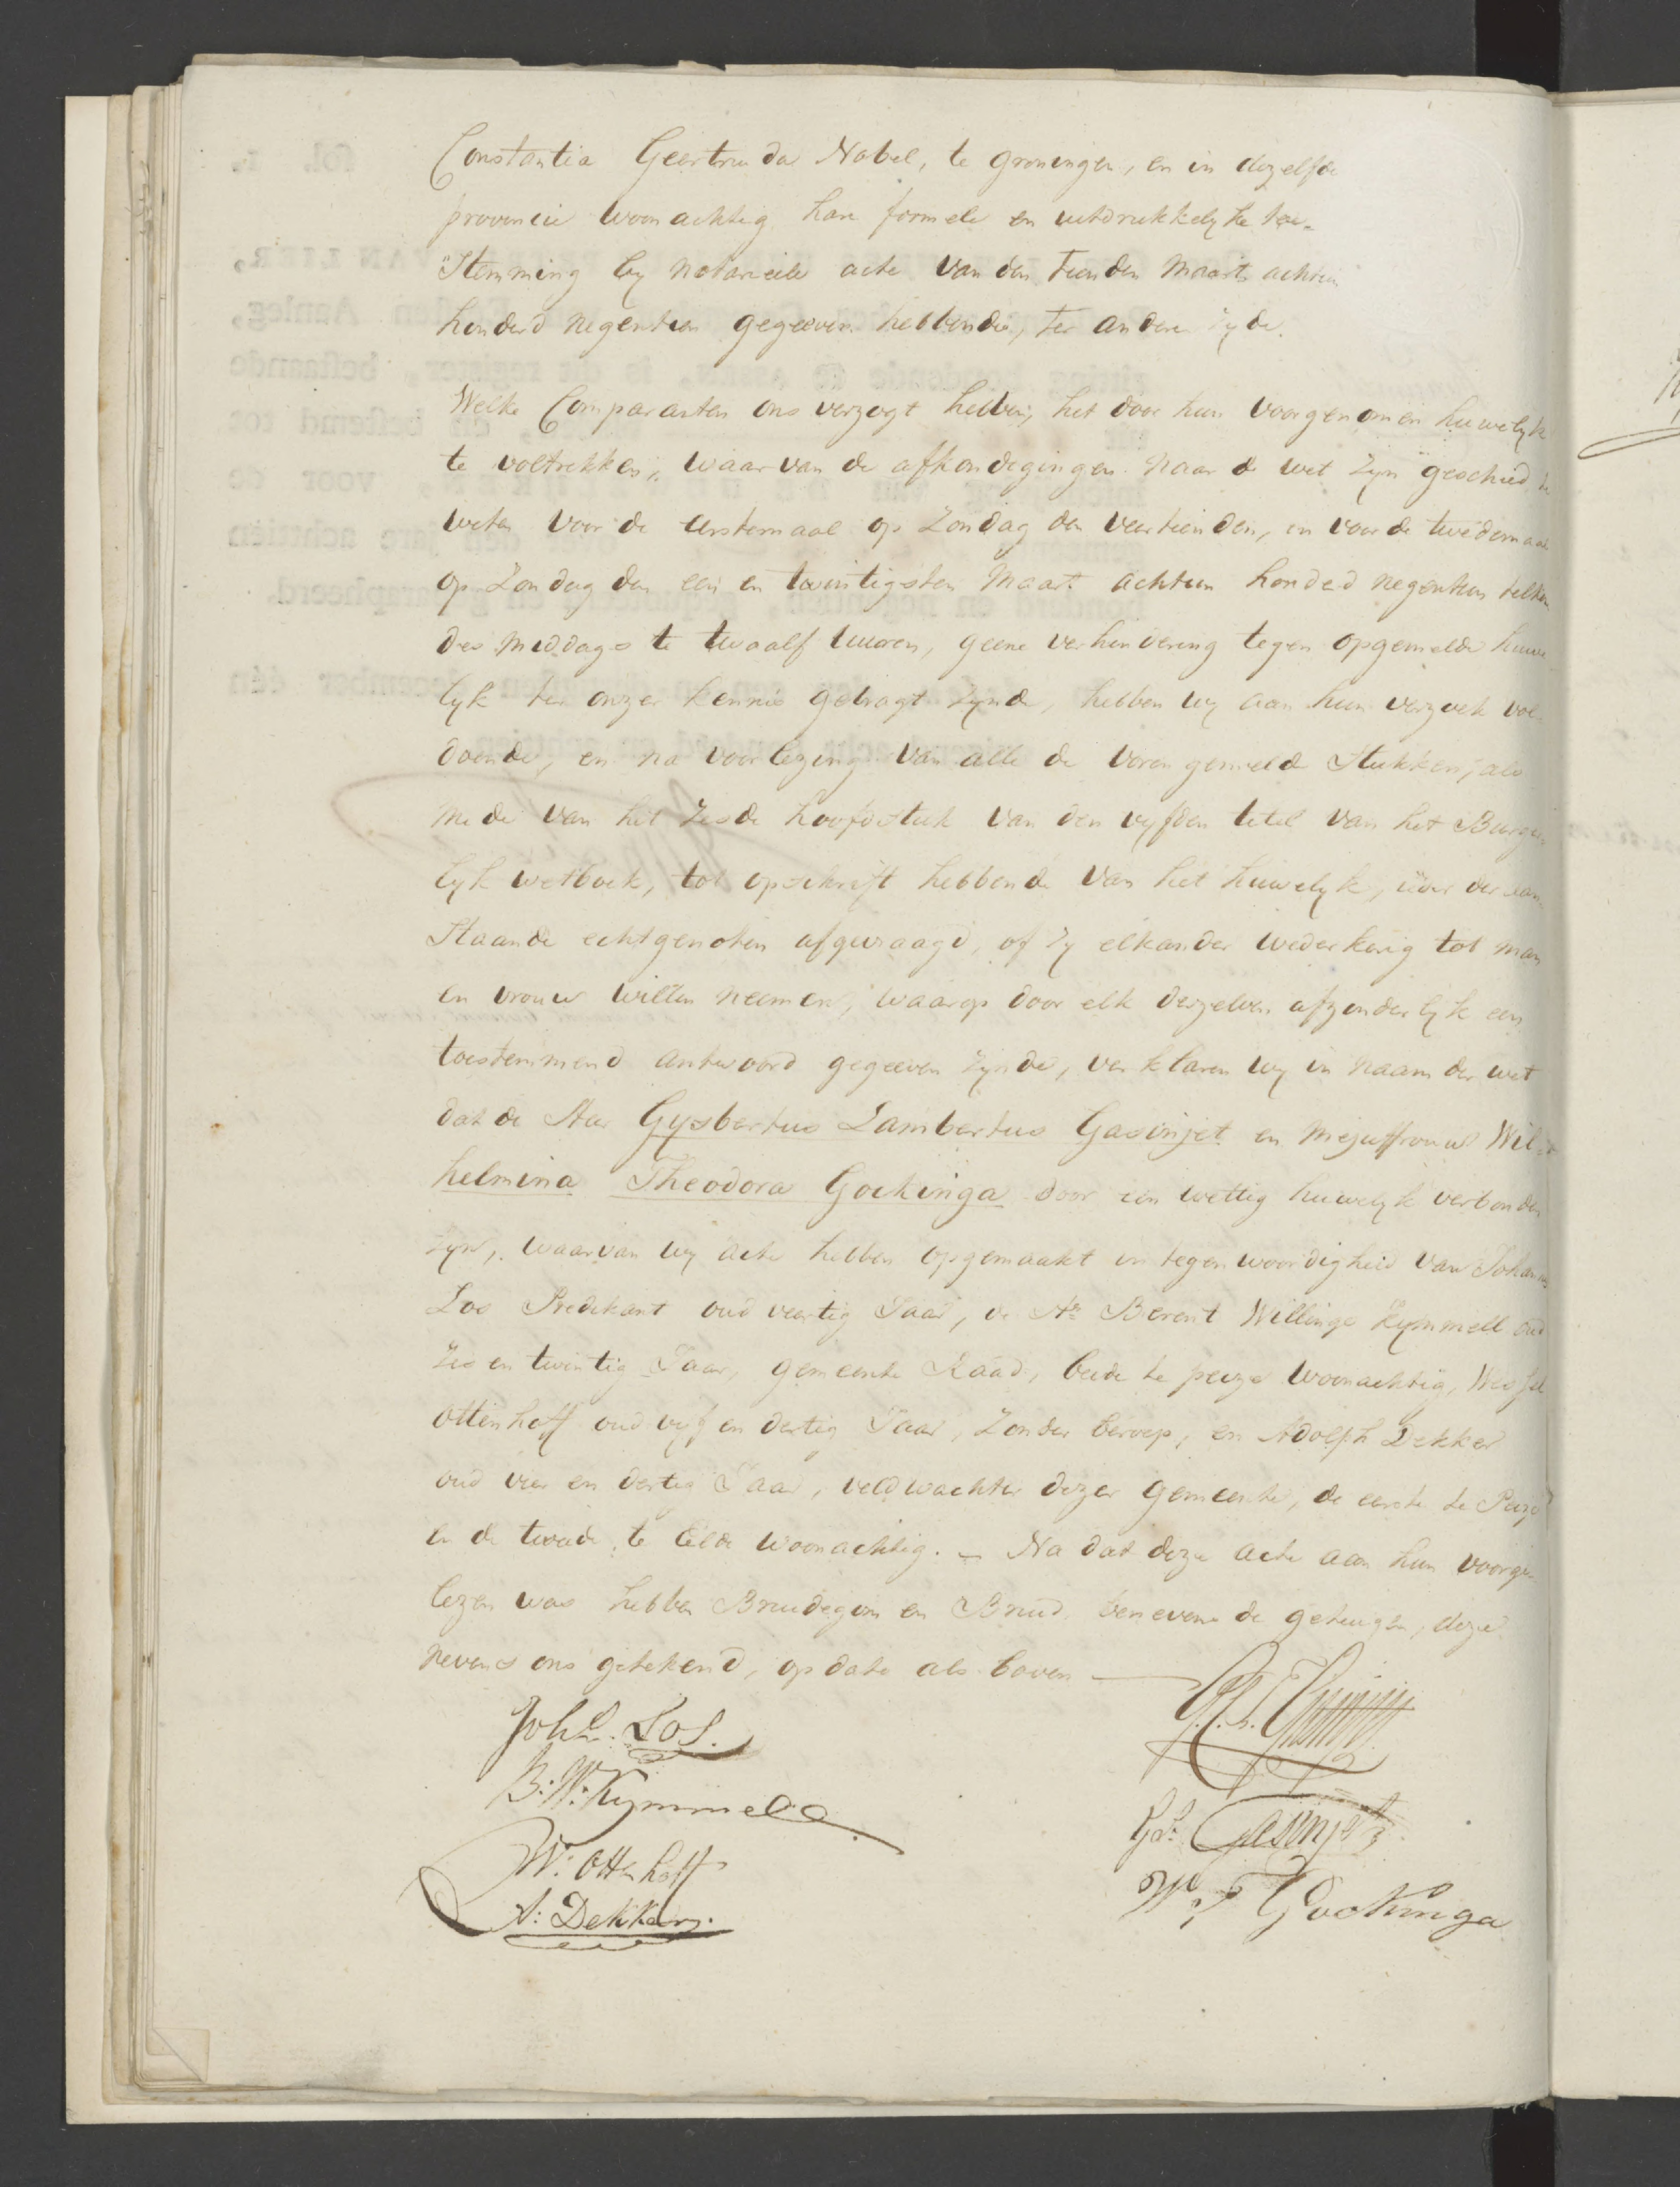 Constantia Geertruda Nobel, te Groningen, en in dezelfde
provincie woonachtig hare formele en uitdrukkelyke toe-
stemming by notarieele acte van den tienden Maart achtien
honderd negentien gegeeven hebbende, ter andere zyde.
Welke Comparanten ons verzogt hebben, het door hun voorgenomen huwelyk
te voltrekken, waarvan de afkondigingen naar de wet zyn geschied, te
weten voor de eerstemaal op Zondag den veertienden, en voor de twedemaal
op Zondag den een en twintigsten Maart achtien honderd negentien telkens
des middags te twaalf uuren, geene verhindering tegen opgemelde huwe-
lyk ter onzer kennis gebragt zynde, hebben wy aan hun verzoek vol-
doende, en na voorlezing van alle de voren gemelde stukken, als
mede van het zesde hoofdstuk van den vyfden titel van het Burger-
lyk wetboek, tot opschrift hebbende van het huwelyk, aan
staande echtgenoten afgevraagd, of zy elkander wederkerig tot man
en vrouw willen neemen, waarop door elk derzelven afzonderlyk een
toestemmend antwoord gegeeven zynde, verklaren wy in naam der wet
dat de Heer Gysbertus Lambertus Gasinjet en Mejuffrouw Wil-
helmina Theodora Gockinga door een wettig huwelyk verbonden
zyn, waarvan wy acte hebben opgemaakt in tegenwoordigheid van Johannes
Los Predikant oud veertig Jaar, de Hr Berent Willinge Kymmell oud
zes en twintig Jaar, gemeente Raad, beide te peize woonachtig, Wessel
Ottenhoff oud vyf en dertig Jaar, zonder beroep, en Adolph Dekker
oud vier en dertig Jaar, veldwachter dezer gemeente, de eerste te Peize
en de twede te Eelde woonachtig. – Na dat deze acte aan hun voorge-
lezen was hebben Bruidegom en Bruid, benevens de getuigen, deze
nevens ons getekend, op dato als boven —
Johs. Los.
B: W: Kymmell
G. Gasinjet
W: Ottenhoff
W T Gockinga
A: Dekker.